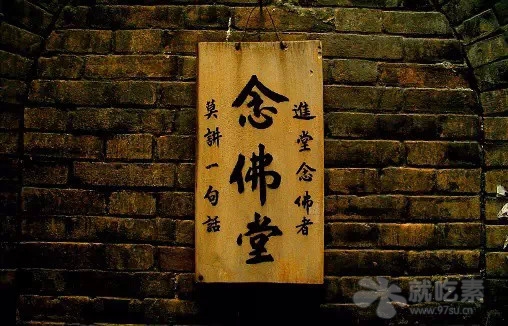 進堂念佛者
念佛堂
莫講一句話
就吃素
www.97su.cn